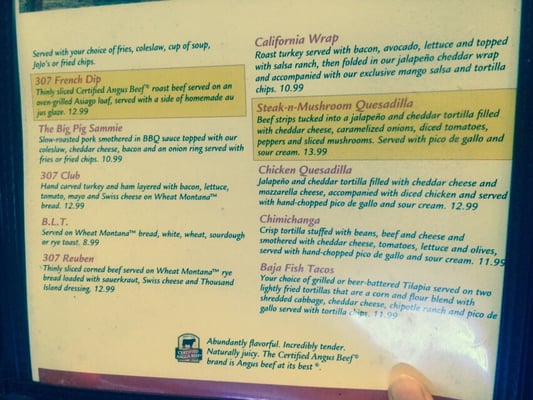 Served with your choice of fries, coleslaw, cup of soup,
JoJo's or fried chips.
307 French Dip
Thinly sliced Certified Angus Beef® roast beef served on an
oven-grilled Asiago loaf, served with a side of homemade au
jus glaze. 12.99
The Big Pig Sammie
Slow-roasted pork smothered in BBQ sauce topped with our
coleslaw, cheddar cheese, bacon and an onion ring served with
fries or fried chips. 10.99
307 Club
Hand carved turkey and ham layered with bacon, lettuce,
tomato, mayo and Swiss cheese on Wheat Montana™
bread. 12.99
B.L.T.
Served on Wheat Montana™ bread, white, wheat, sourdough
or rye toast. 8.99
307 Reuben
Thinly sliced corned beef served on Wheat Montana™ rye
bread loaded with sauerkraut, Swiss cheese and Thousand
Island dressing. 12.99
California Wrap
Roast turkey served with bacon, avocado, lettuce and topped
with salsa ranch, then folded in our jalapeño cheddar wrap
and accompanied with our exclusive mango salsa and tortilla
chips. 10.99
Steak-n-Mushroom Quesadilla
Beef strips tucked into a jalapeño and cheddar tortilla filled
with cheddar cheese, caramelized onions, diced tomatoes,
peppers and sliced mushrooms. Served with pico de gallo and
sour cream. 13.99
Chicken Quesadilla
Jalapeño and cheddar tortilla filled with cheddar cheese and
mozzarella cheese, accompanied with diced chicken and served
with hand-chopped pico de gallo and sour cream. 12.99
Chimichanga
Crisp tortilla stuffed with beans, beef and cheese and
smothered with cheddar cheese, tomatoes, lettuce and olives,
served with hand-chopped pico de gallo and sour cream. 11.99
Baja Fish Tacos
Your choice of grilled or beer-battered Tilapia served on two
lightly fried tortillas that are a corn and flour blend with
shredded cabbage, cheddar cheese, chipotle ranch and pico de
gallo served with tortilla chips. 11.99
CERTIFIED
ANGUS BEEF
Abundantly flavorful. Incredibly tender.
Naturally juicy. The Certified Angus Beef®
brand is Angus beef at its best®.